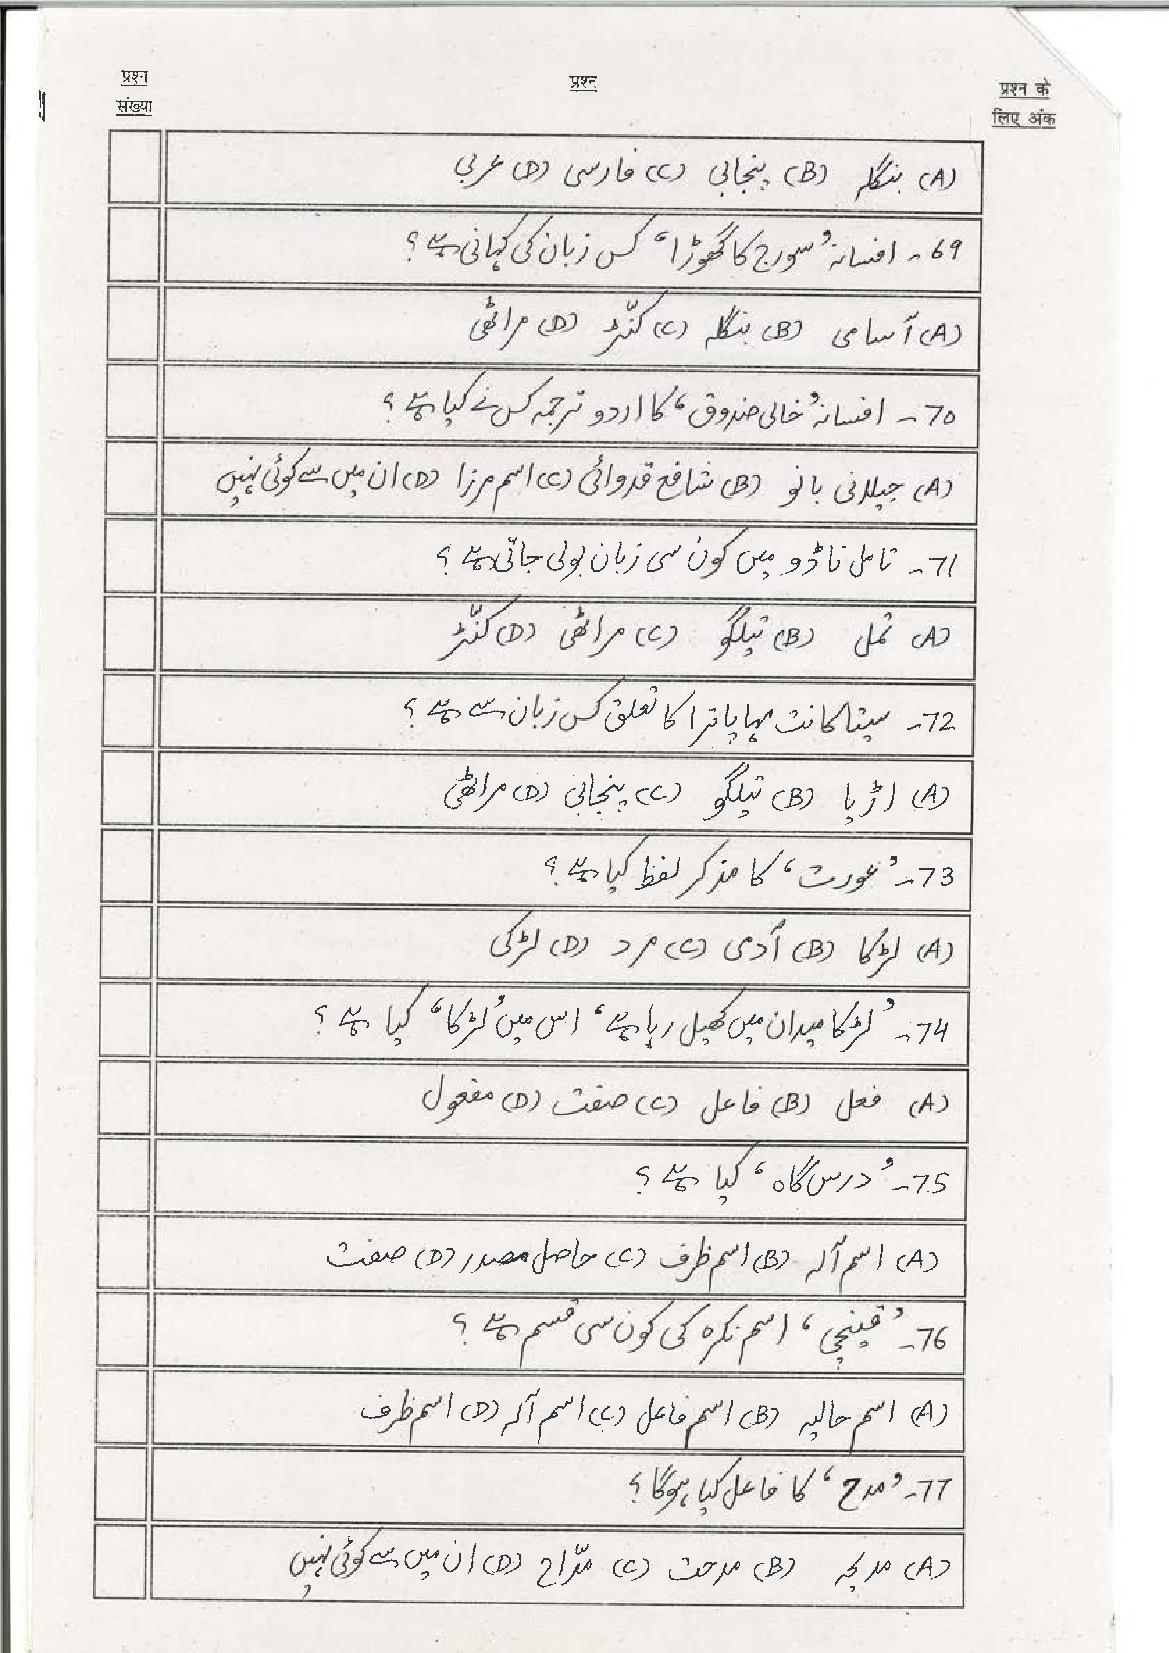 प्रश्न संख्या
प्रश्न
प्रश्न के लिए अंक
(A) بنگلہ (B) پنجابی (C) فارسی (D) عربی
69۔ افسانہ ’سورج کا گھوڑا‘ کس زبان کی کہانی ہے؟
(A) آسامی (B) بنگلہ (C) کنّڑ (D) مراٹھی
70۔ افسانہ ’خالی صندوق‘ کا اردو ترجمہ کس نے کیا ہے؟
(A) جیلانی بانو (B) شافع قدوائی (C) اسم مرزا (D) ان میں سے کوئی نہیں
71۔ تامل ناڈو میں کون سی زبان بولی جاتی ہے؟
(A) تمل (B) تیلگو (C) مراٹھی (D) کنّڑ
72۔ سیتا کانت مہاپاترا کا تعلق کس زبان سے ہے؟
(A) اڑیا (B) تیلگو (C) پنجابی (D) مراٹھی
73۔ ’عورت‘ کا مذکر لفظ کیا ہے؟
(A) لڑکا (B) آدمی (C) مرد (D) لڑکی
74۔ ’لڑکا میدان میں کھیل رہا ہے‘ اس میں ’لڑکا‘ کیا ہے؟
(A) فعل (B) فاعل (C) صفت (D) مفعول
75۔ ’درس گاہ‘ کیا ہے؟
(A) اسم آلہ (B) اسم ظرف (C) حاصل مصدر (D) صفت
76۔ ’قینچی‘ اسم نکرہ کی کون سی قسم ہے؟
(A) اسم حالیہ (B) اسم فاعل (C) اسم آلہ (D) اسم ظرف
77۔ ’مدح‘ کا فاعل کیا ہوگا؟
(A) مدیحہ (B) مدحت (C) مدّاح (D) ان میں سے کوئی نہیں